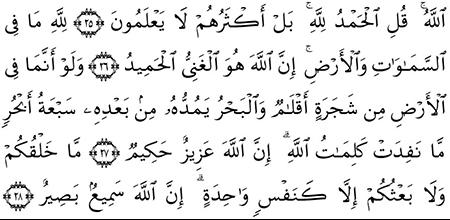 ٱللَّهُ ۚ قُلِ ٱلْحَمْدُ لِلَّهِ ۚ بَلْ أَكْثَرُهُمْ لَا يَعْلَمُونَ ﴿٢٥﴾ لِلَّهِ مَا فِى
ٱلسَّمَـٰوَٰتِ وَٱلْأَرْضِ ۚ إِنَّ ٱللَّهَ هُوَ ٱلْغَنِىُّ ٱلْحَمِيدُ ﴿٢٦﴾ وَلَوْ أَنَّمَا فِى
ٱلْأَرْضِ مِن شَجَرَةٍ أَقْلَـٰمٌ وَٱلْبَحْرُ يَمُدُّهُۥ مِنۢ بَعْدِهِۦ سَبْعَةُ أَبْحُرٍ
مَّا نَفِدَتْ كَلِمَـٰتُ ٱللَّهِ ۗ إِنَّ ٱللَّهَ عَزِيزٌ حَكِيمٌ ﴿٢٧﴾ مَّا خَلْقُكُمْ
وَلَا بَعْثُكُمْ إِلَّا كَنَفْسٍ وَٰحِدَةٍ ۗ إِنَّ ٱللَّهَ سَمِيعٌۢ بَصِيرٌ ﴿٢٨﴾